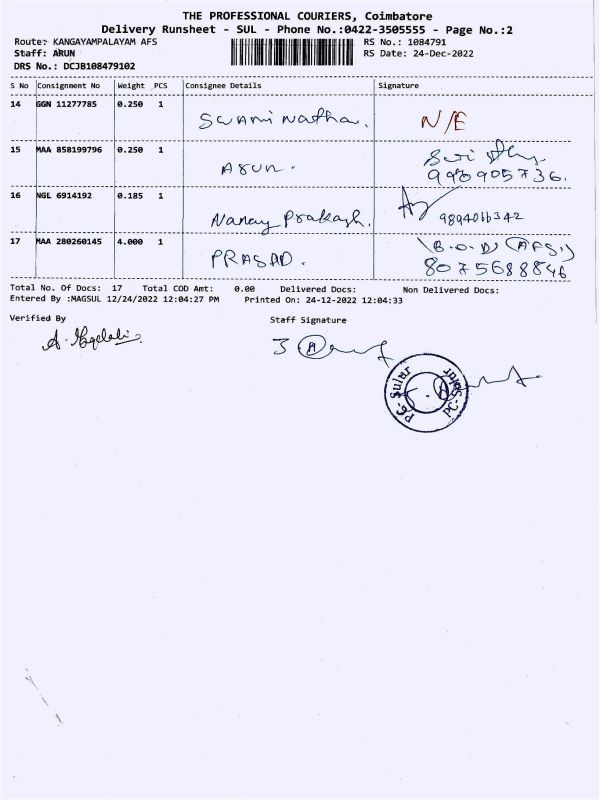 THE PROFESSIONAL COURIERS, Coimbatore
Delivery Runsheet - SUL - Phone No.:0422-3505555 - Page No.:2
Route: KANGAYAMPALAYAM AFS RS No.: 1084791
Staff: ARUN RS Date: 24-Dec-2022
DRS No.: DCJB108479102
S No Consignment No Weight PCS Consignee Details Signature
14 GGN 11277785 0.250 1 Swami Nathan. N/E
15 MAA 858199796 0.250 1 Arun.
16 NGL 6914192 0.185 1 Prakash. 9894016342
17 MAA 280260145 4.000 1 PRASAD. (AFS)
8075688846
Total No. Of Docs: 17 Total COD Amt: 0.00 Delivered Docs: Non Delivered Docs:
Entered By :MAGSUL 12/24/2022 12:04:27 PM Printed On: 24-12-2022 12:04:33
Verified By Staff Signature
PC-Sulur PC-Sulur